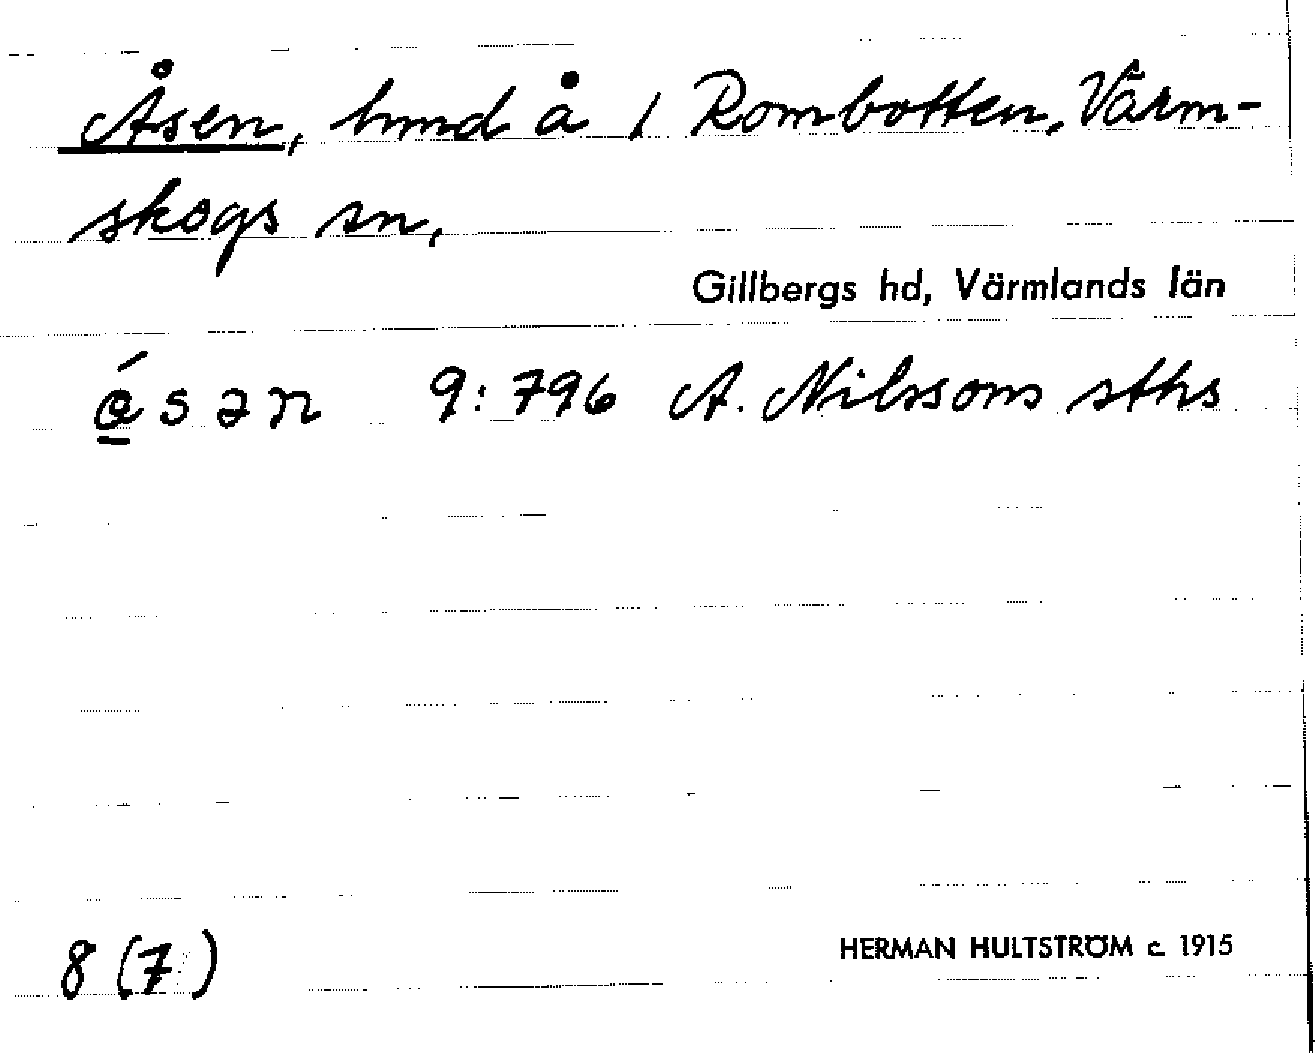 Åsen, hmd å 1 Rombotten, Värm-
skogs sn,
Gillbergs hd, Värmlands län
ǻsən 9:796 A. Nilssons sths
8 (7)
HERMAN HULTSTRÖM c. 1915